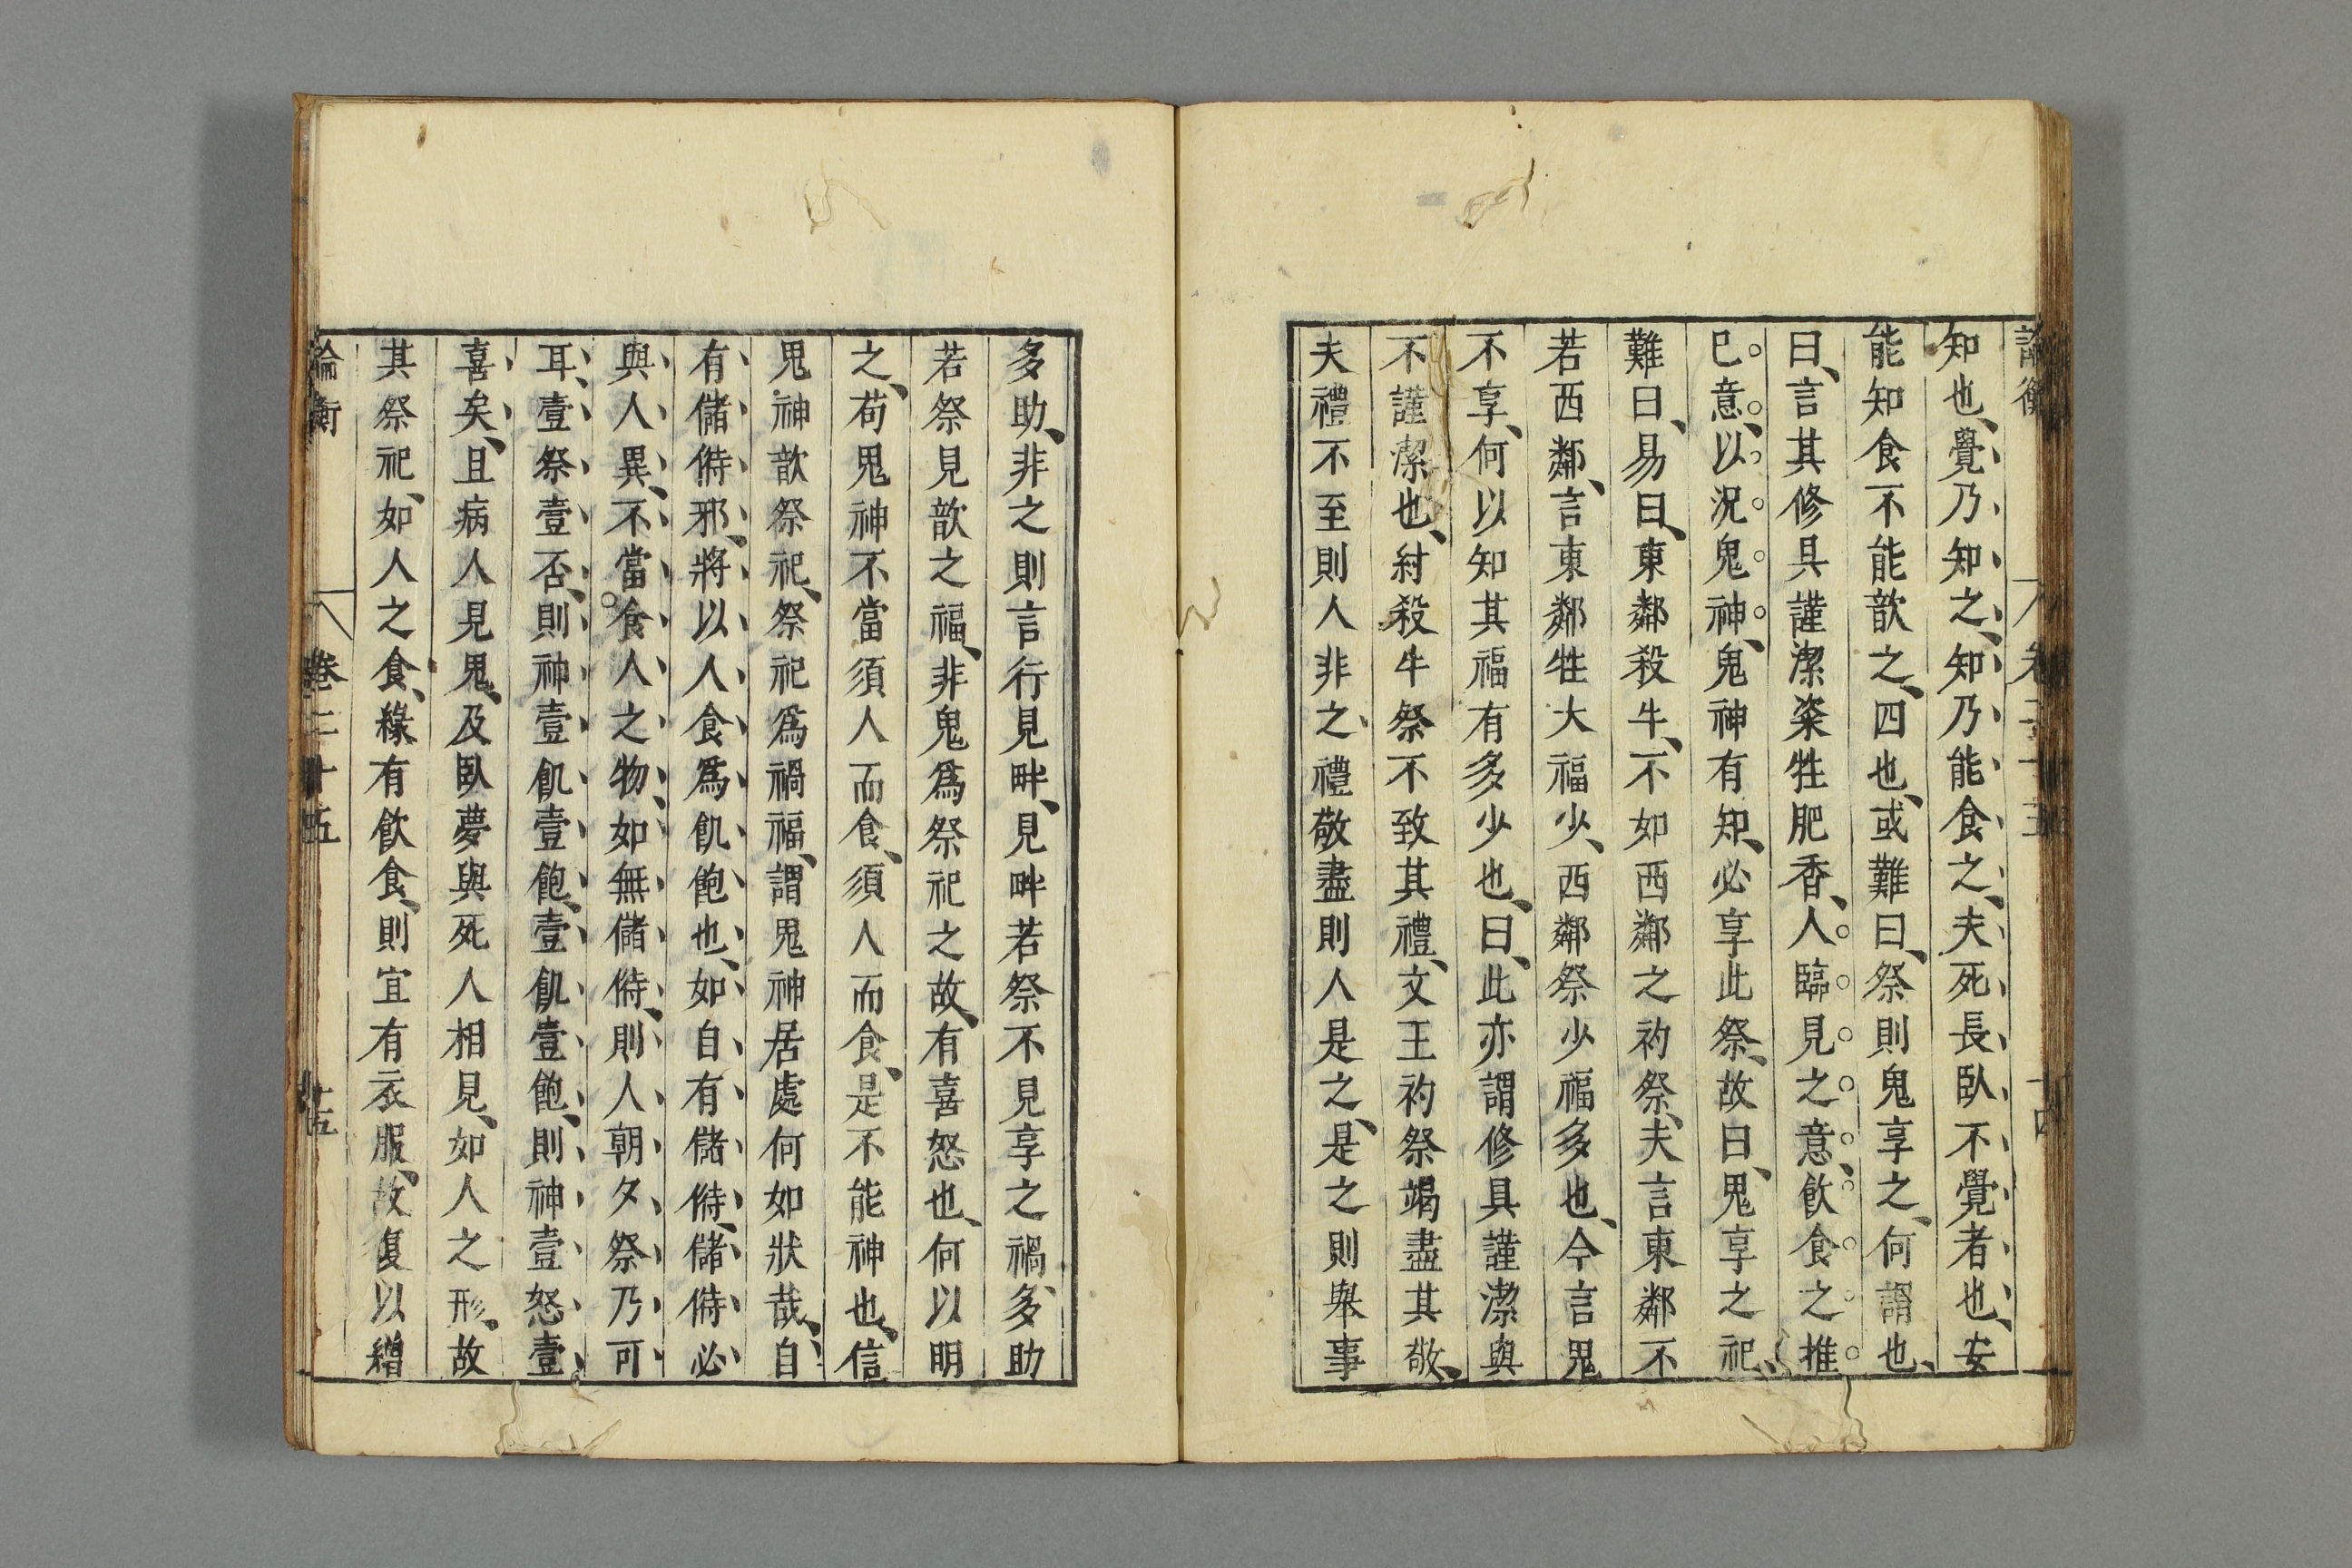 論衡 卷二十五 十四
知也、覺乃知之、知乃能食之、夫死長臥不覺者也、安
能知食不能歆之、四也、或難曰、祭則鬼享之、何謂也、
曰、言其修具謹潔粢牲肥香、人臨見之意、飲食之推
已意、以況鬼神、鬼神有知、必享此祭、故曰、鬼享之祀、
難曰、易曰、東鄰殺牛、不如西鄰之礿祭、夫言東鄰不
若西鄰、言東鄰牲大福少、西鄰祭少福多也、今言鬼
不享、何以知其福有多少也、曰、此亦謂修具謹潔與
不謹潔也、紂殺牛祭不致其禮、文王礿祭竭盡其敬、
夫禮不至則人非之、禮敬盡則人是之、是之則舉事
多助、非之則言行見畔、見畔若祭不見享之禍、多助
若祭見歆之福、非鬼為祭祀之故、有喜怒也、何以明
之、苟鬼神不當須人而食、須人而食、是不能神也、信
鬼神歆祭祀、祭祀爲禍福、謂鬼神居處何如狀哉、自
有儲偫邪、將以人食爲飢飽也、如自有儲偫、儲偫必
與人異、不當食人之物、如無儲偫、則人朝夕祭乃可
耳、壹祭壹否、則神壹飢壹飽、壹飢壹飽、則神壹怒壹
喜矣、且病人見鬼、及臥夢與死人相見、如人之形、故
其祭祀、如人之食、緣有飲食、則宜有衣服、故復以繒
論衡 卷二十五 十五